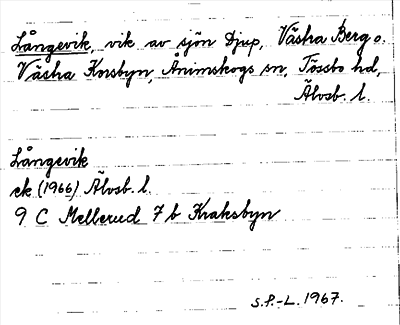 Långevik, vik av sjön Djup, Västra Berg o.
Västra Korsbyn, Ånimskogs sn, Tössbo hd,
Älvsb. l.
Långevik
ek (1966) Älvsb. l.
9 C Mellerud 7 b Kraksbyn
S.P.-L. 1967.